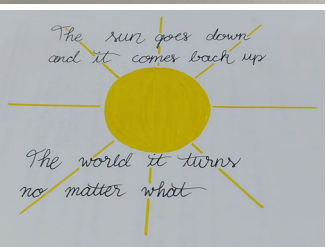 The sun goes down
and it comes back up
The world it turns
no matter what